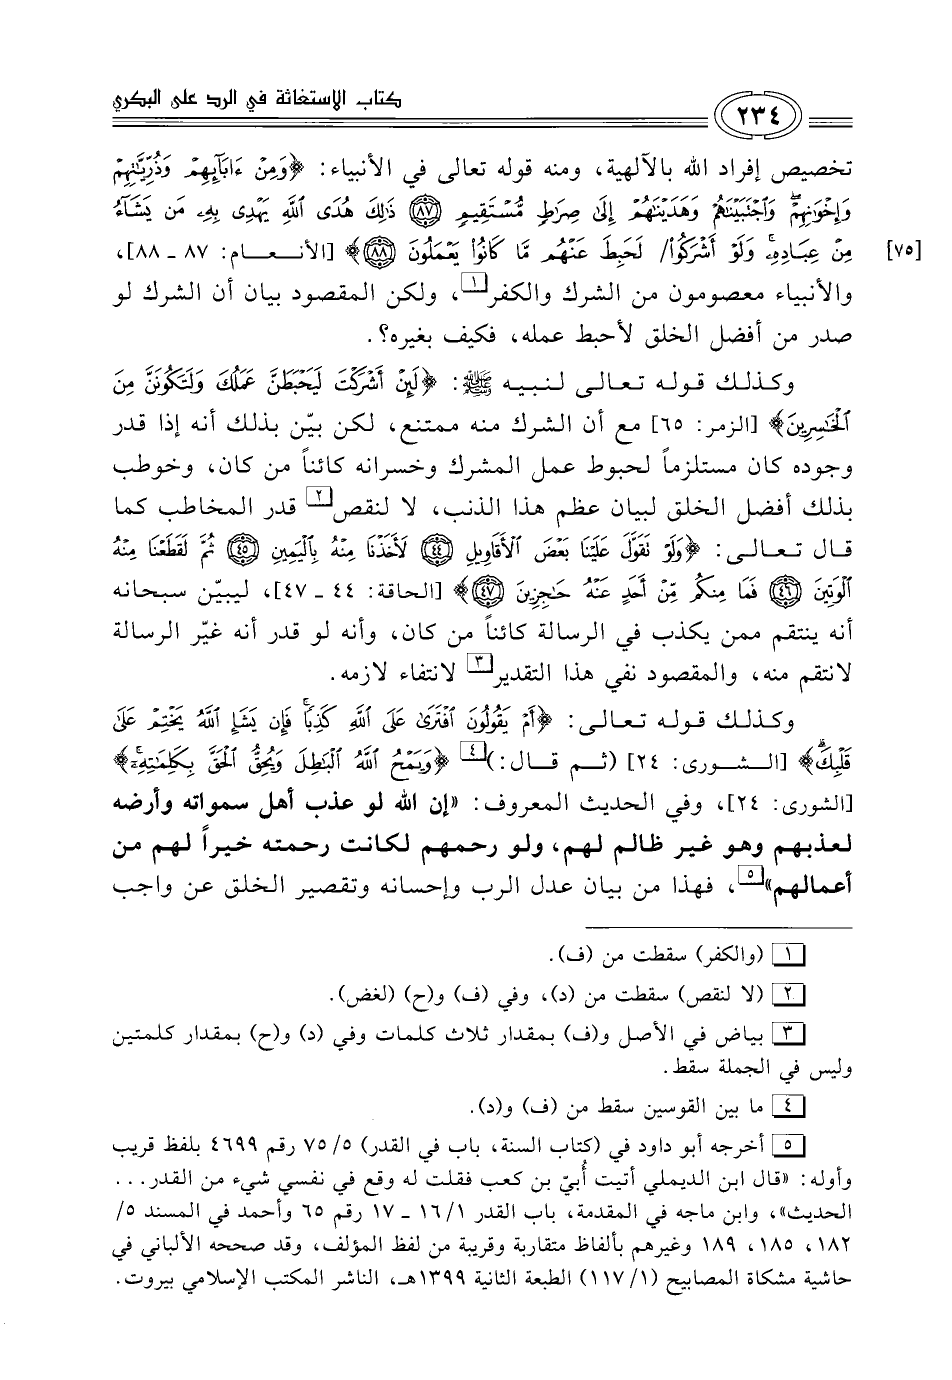 كتاب الإستغاثة في الرد على البكري
٢٣٤
تخصيص إفراد الله بالآلهية، ومنه قوله تعالى في الأنبياء: ﴿وَمِنْ ءَابَآئِهِمْ وَذُرِّيَّٰتِهِمْ
وَإِخْوَٰنِهِمْ وَٱجْتَبَيْنَٰهُمْ وَهَدَيْنَٰهُمْ إِلَىٰ صِرَٰطٍ مُّسْتَقِيمٍ ٨٧ ذَٰلِكَ هُدَى ٱللَّهِ يَهْدِى بِهِۦ مَن يَشَآءُ
[٧٥] مِنْ عِبَادِهِۦ وَلَوْ أَشْرَكُوا۟/ لَحَبِطَ عَنْهُم مَّا كَانُوا۟ يَعْمَلُونَ ٨٨﴾ [الأنعام: ٨٧ ـ ٨٨]،
والأنبياء معصومون من الشرك والكفر[١]، ولكن المقصود بيان أن الشرك لو
صدر من أفضل الخلق لأحبط عمله، فكيف بغيره؟.
وكذلك قوله تعالى لنبيه ﷺ: ﴿لَئِنْ أَشْرَكْتَ لَيَحْبَطَنَّ عَمَلُكَ وَلَتَكُونَنَّ مِنَ
ٱلْخَٰسِرِينَ﴾ [الزمر: ٦٥] مع أن الشرك منه ممتنع، لكن بيّن بذلك أنه إذا قدر
وجوده كان مستلزماً لحبوط عمل المشرك وخسرانه كائناً من كان، وخوطب
بذلك أفضل الخلق لبيان عظم هذا الذنب، لا لنقص[٢] قدر المخاطب كما
قال تعالى: ﴿وَلَوْ تَقَوَّلَ عَلَيْنَا بَعْضَ ٱلْأَقَاوِيلِ ٤٤ لَأَخَذْنَا مِنْهُ بِٱلْيَمِينِ ٤٥ ثُمَّ لَقَطَعْنَا مِنْهُ
ٱلْوَتِينَ ٤٦ فَمَا مِنكُم مِّنْ أَحَدٍ عَنْهُ حَٰجِزِينَ ٤٧﴾ [الحاقة: ٤٤ ـ ٤٧]، ليبيّن سبحانه
أنه ينتقم ممن يكذب في الرسالة كائناً من كان، وأنه لو قدر أنه غيّر الرسالة
لانتقم منه، والمقصود نفي هذا التقدير[٣] لانتفاء لازمه.
وكذلك قوله تعالى: ﴿أَمْ يَقُولُونَ ٱفْتَرَىٰ عَلَى ٱللَّهِ كَذِبًا فَإِن يَشَإِ ٱللَّهُ يَخْتِمْ عَلَىٰ
قَلْبِكَ﴾ [الشورى: ٢٤] (ثم قال:)[٤] ﴿وَيَمْحُ ٱللَّهُ ٱلْبَٰطِلَ وَيُحِقُّ ٱلْحَقَّ بِكَلِمَٰتِهِۦ﴾
[الشورى: ٢٤]، وفي الحديث المعروف: «إن الله لو عذب أهل سمواته وأرضه
لعذبهم وهو غير ظالم لهم، ولو رحمهم لكانت رحمته خيراً لهم من
أعمالهم»[٥]، فهذا من بيان عدل الرب وإحسانه وتقصير الخلق عن واجب
[١] (والكفر) سقطت من (ف).
[٢] (لا لنقص) سقطت من (د)، وفي (ف) و(ح) (لغض).
[٣] بياض في الأصل و(ف) بمقدار ثلاث كلمات وفي (د) و(ح) بمقدار كلمتين
وليس في الجملة سقط.
[٤] ما بين القوسين سقط من (ف) و(د).
[٥] أخرجه أبو داود في (كتاب السنة، باب في القدر) ٧٥/٥ رقم ٤٦٩٩ بلفظ قريب
وأوله: «قال ابن الديملي أتيت أُبيّ بن كعب فقلت له وقع في نفسي شيء من القدر...
الحديث»، وابن ماجه في المقدمة، باب القدر ١٦/١ ـ ١٧ رقم ٦٥ وأحمد في المسند ٥/
١٨٢، ١٨٥، ١٨٩ وغيرهم بألفاظ متقاربة وقريبة من لفظ المؤلف، وقد صححه الألباني في
حاشية مشكاة المصابيح (١١٧/١) الطبعة الثانية ١٣٩٩هـ، الناشر المكتب الإسلامي بيروت.